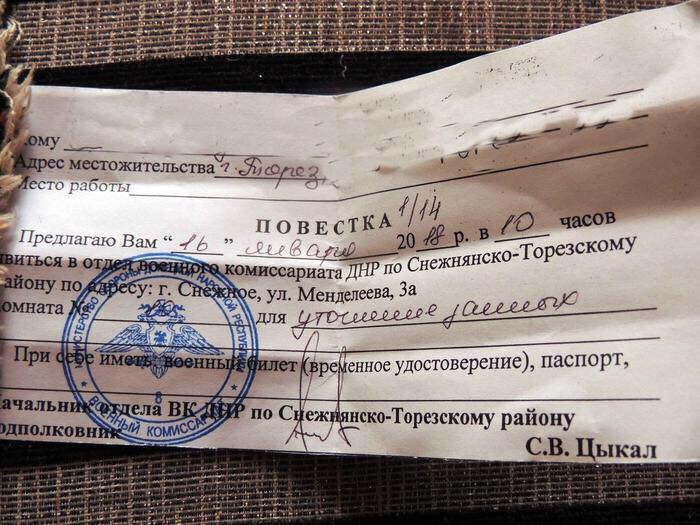 кому
Адрес местожительства г. Торез
Место работы
ПОВЕСТКА 1/14
Предлагаю Вам “ 16 ” января 2018 г. в 10 часов
явиться в отдел военного комиссариата ДНР по Снежнянско-Торезскому
району по адресу: г. Снежное, ул. Менделеева, 3а
комната № для уточнение данных
При себе иметь военный билет (временное удостоверение), паспорт,
Начальник отдела ВК ДНР по Снежнянско-Торезскому району
подполковник
С.В. Цыкал
МИНИСТЕРСТВО ОБОРОНЫ ДОНЕЦКОЙ НАРОДНОЙ РЕСПУБЛИКИ
8
ВОЕННЫЙ КОМИССАРИАТ